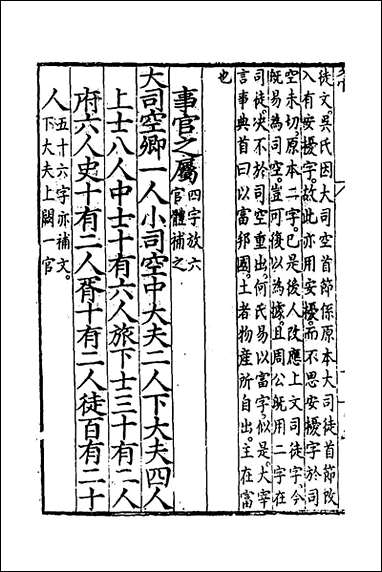 徒文。吳氏因大司空首節係原本大司徒首節改
入有安擾字。故此亦用安擾。而不思安擾字於司
空未切。原本二字。已是後人改應上文司徒字。今
旣易為司空。豈可復以為據。且周公旣用二字在
司徒。决不於司空重出。何氏易以富字。似是。大宰
言事典首曰以富邦國。土者物產所自出。主在富
也
事官之屬四字放六
官體補之
大司空卿一人小司空中大夫二人下大夫四人
上士八人中士十有六人旅下士三十有二人
府六人史十有二人胥十有二人徒百有二十
人五十六字亦補文。
下大夫上闕一官